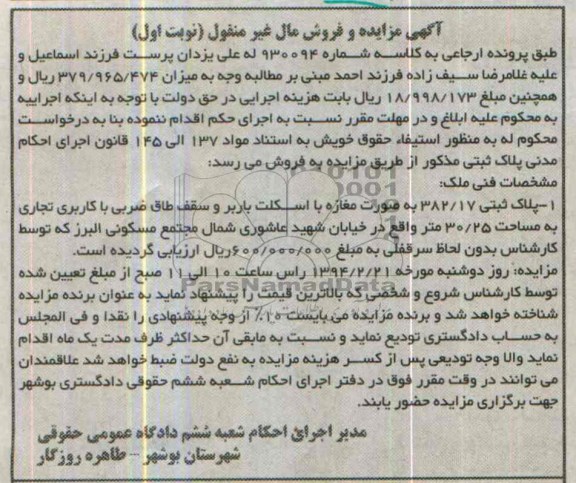 آگهی مزایده و فروش مال غیر منقول (نوبت اول)
طبق پرونده ارجاعی به کلاسه شماره ۹۳۰۰۹۴ له علی یزدان پرست فرزند اسماعیل و
علیه غلامرضا سیف زاده فرزند احمد مبنی بر مطالبه وجه به میزان ۳۷۹/۹۶۵/۴۷۴ ریال و
همچنین مبلغ ۱۸/۹۹۸/۱۷۳ ریال بابت هزینه اجرایی در حق دولت با توجه به اینکه اجراییه
به محکوم علیه ابلاغ و در مهلت مقرر نسبت به اجرای حکم اقدام ننموده بنا به درخواست
محکوم له به منظور استیفاء حقوق خویش به استناد مواد ۱۳۷ الی ۱۴۵ قانون اجرای احکام
مدنی پلاک ثبتی مذکور از طریق مزایده به فروش می رسد:
مشخصات فنی ملک:
۱-پلاک ثبتی ۳۸۲/۱۷ به صورت مغازه با اسکلت باربر و سقف طاق ضربی با کاربری تجاری
به مساحت ۳۰/۲۵ متر واقع در خیابان شهید عاشوری شمال مجتمع مسکونی البرز که توسط
کارشناس بدون لحاظ سرقفلی به مبلغ ۶۰۰/۰۰۰/۰۰۰ریال ارزیابی گردیده است.
مزایده: روز دوشنبه مورخه ۱۳۹۴/۲/۲۱ راس ساعت ۱۰ الی ۱۱ صبح از مبلغ تعیین شده
ParsNamadData
توسط کارشناس شروع و شخصی که بالاترین قیمت را پیشنهاد نماید به عنوان برنده مزایده
شناخته خواهد شد و برنده مزایده می بایست ۱۰٪ از وجه پیشنهادی را نقدا و فی المجلس
به حساب دادگستری تودیع نماید و نسبت به مابقی آن حداکثر ظرف مدت یک ماه اقدام
نماید والا وجه تودیعی پس از کسر هزینه مزایده به نفع دولت ضبط خواهد شد علاقمندان
می توانند در وقت مقرر فوق در دفتر اجرای احکام شعبه ششم حقوقی دادگستری بوشهر
جهت برگزاری مزایده حضور یابند.
مدیر اجرای احکام شعبه ششم دادگاه عمومی حقوقی
شهرستان بوشهر - طاهره روزگار